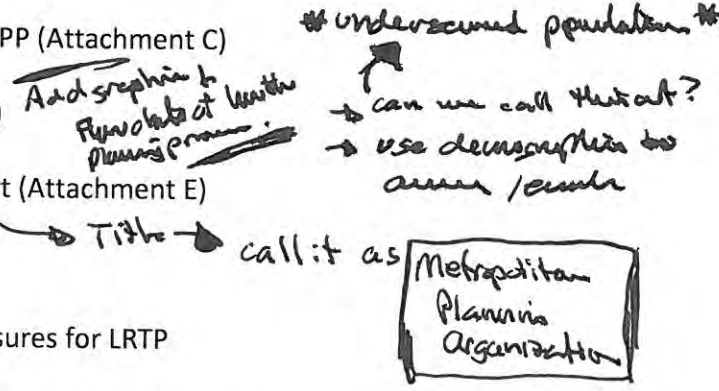 PP (Attachment C)
# underserved population #
Add graphic &
planning process.
→ can we call this out?
→ use demographics to
t (Attachment E)
→ Title → call it as
Metropolitan
Planning
Organization
sures for LRTP